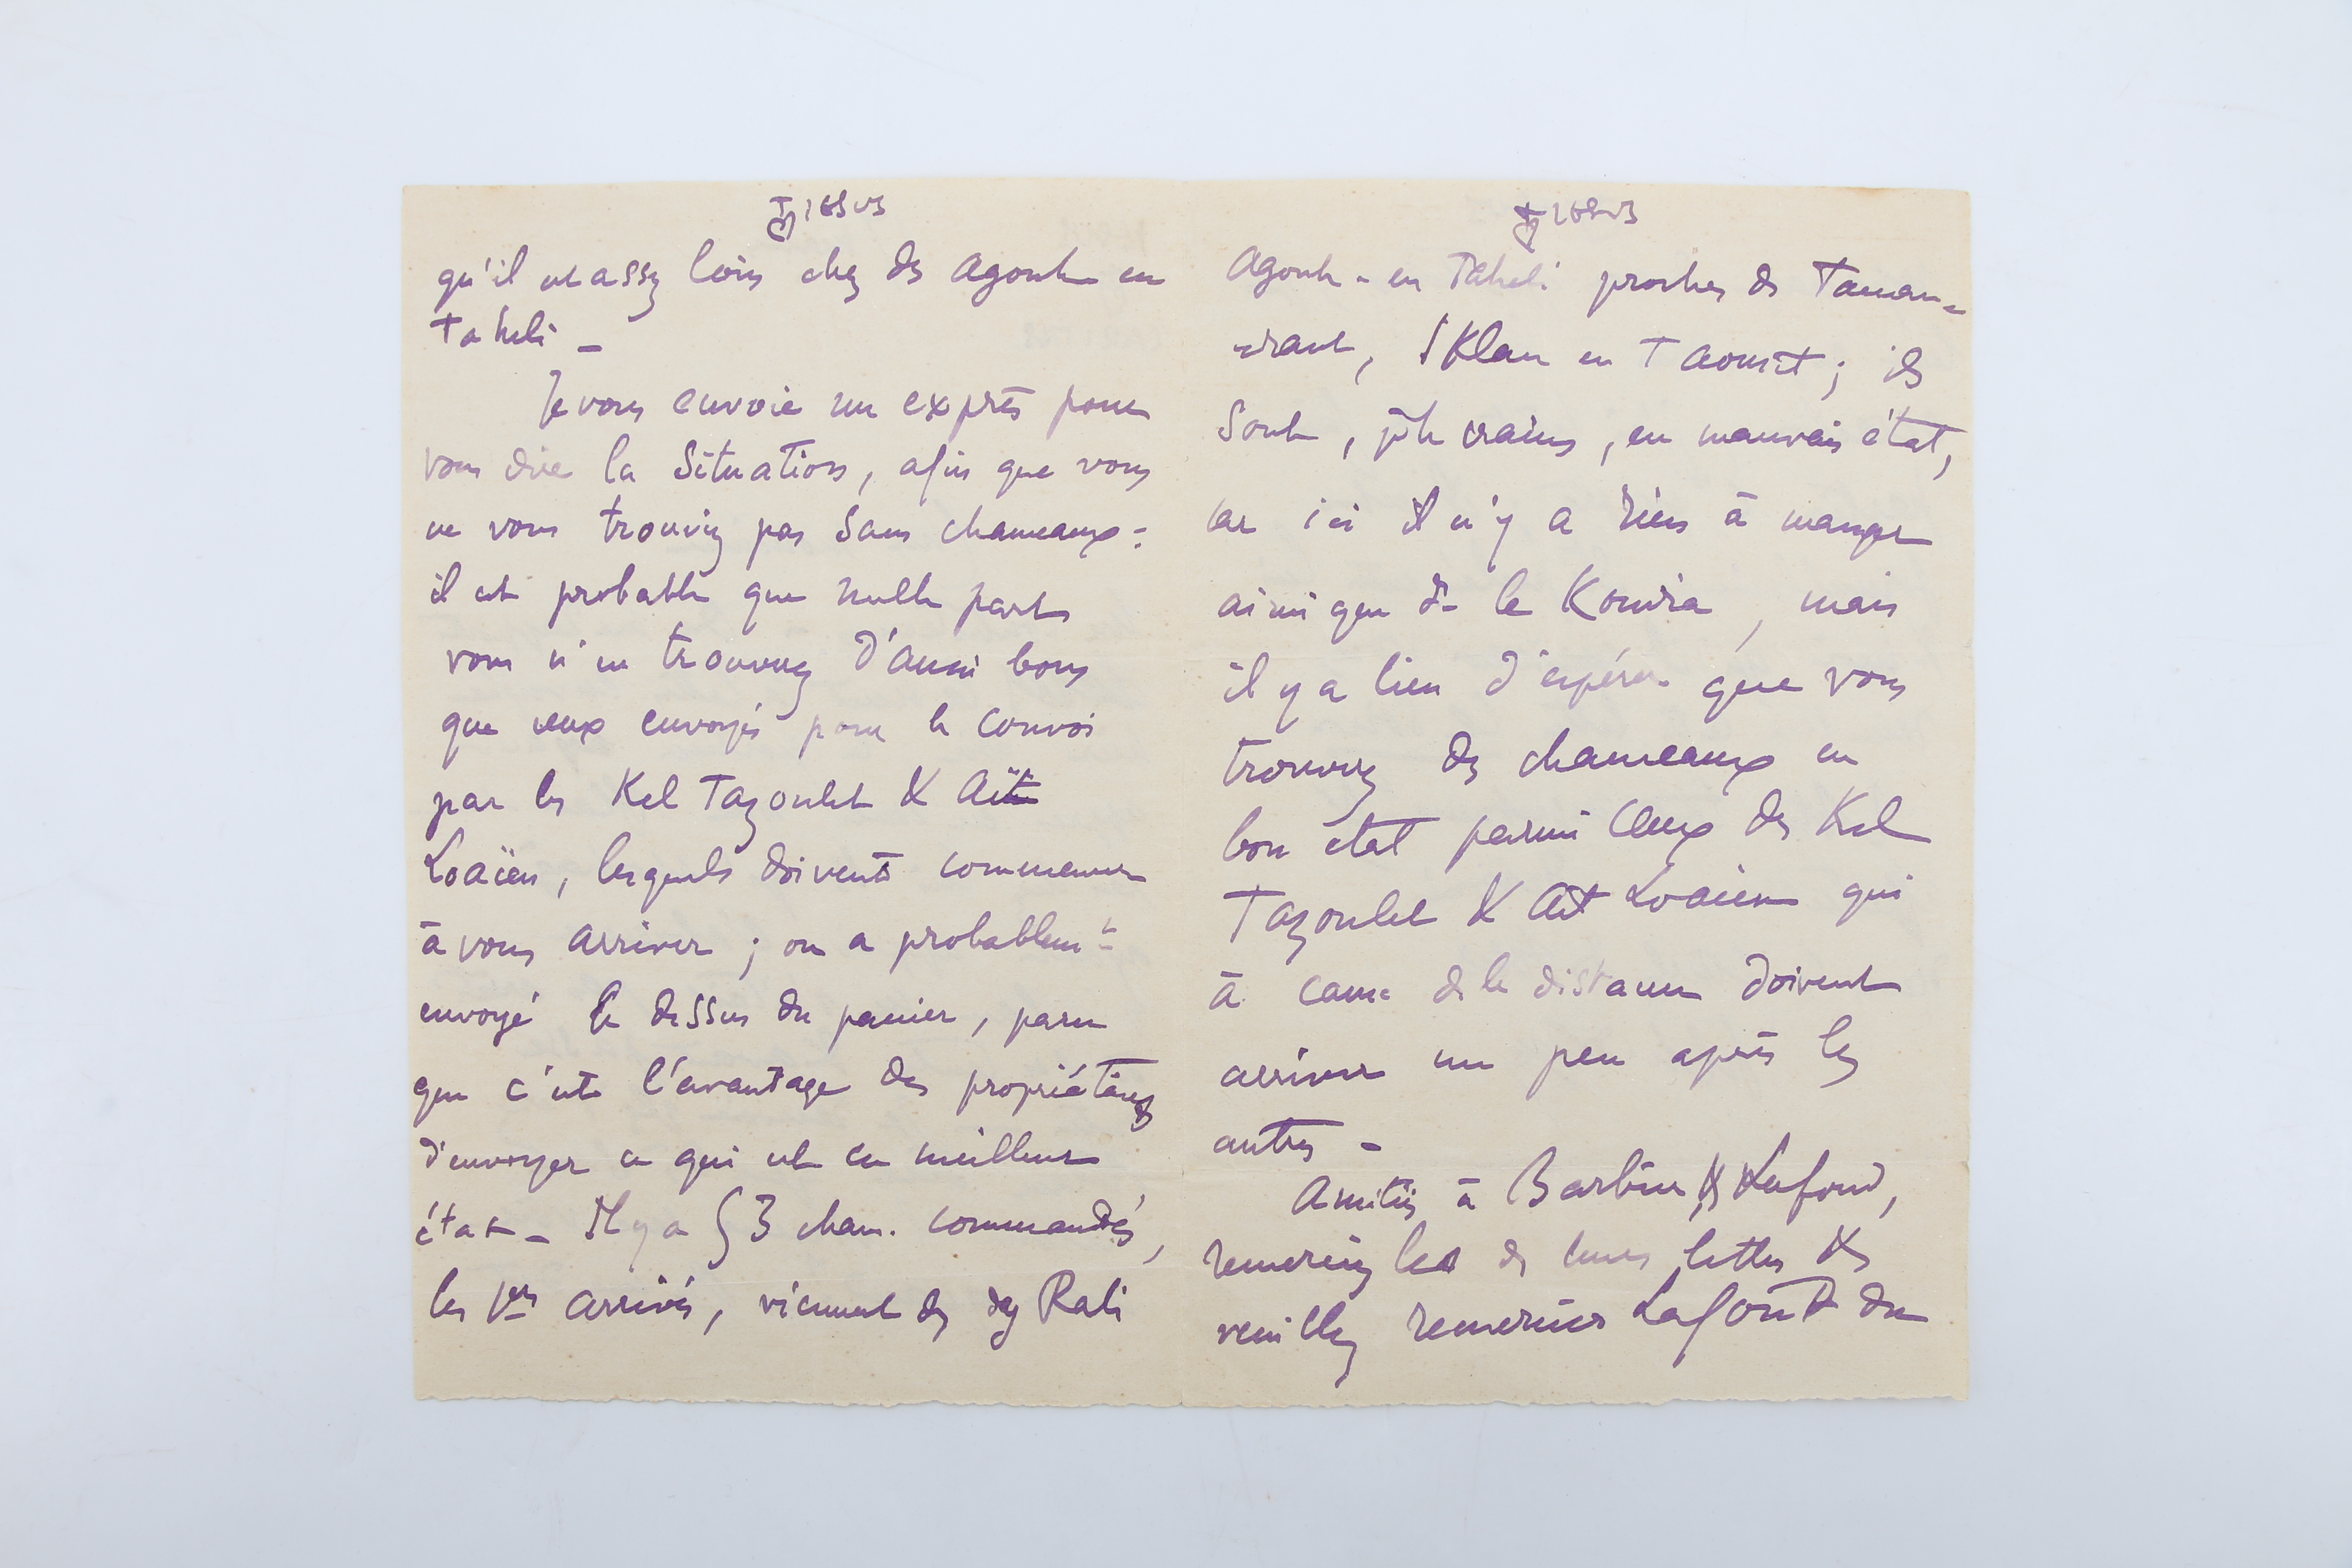 JESUS
qu'il est assez loin chez des Agouh-en
Taheli _
Je vous envoie un exprès pour
vous dire la situation, afin que vous
ne vous trouviez pas sans chameaux :
il est probable que nulle part
vous n'en trouverez d'aussi bons
que ceux envoyés pour le convoi
par les Kel Tazoulet & Aït
Loaïen, lesquels doivent commencer
à vous arriver ; on a probablemt
envoyé le dessus du panier, parce
que c'est l'avantage des propriétaires
d'envoyer ce qui est en meilleur
état _ Il y a 53 cham. commandés,
les 1ers arrivés, viennent des dag Rali
JESUS
Agouh-en Taheli proches de Taman-
-raset, Iklan en Taousit ; ils
sont, je le crains, en mauvais état,
car ici il n'y a rien à manger
ainsi que ds la Koudia, mais
il y a lieu d'espérer que vous
trouverez des chameaux en
bon état parmi ceux des Kel
Tazoulet & Aït Loaïen qui
à cause de la distance doivent
arriver un peu après les
autres _
Amitiés à & Lafond,
remerciez les de leurs lettres &
veuillez remercier Lafond du